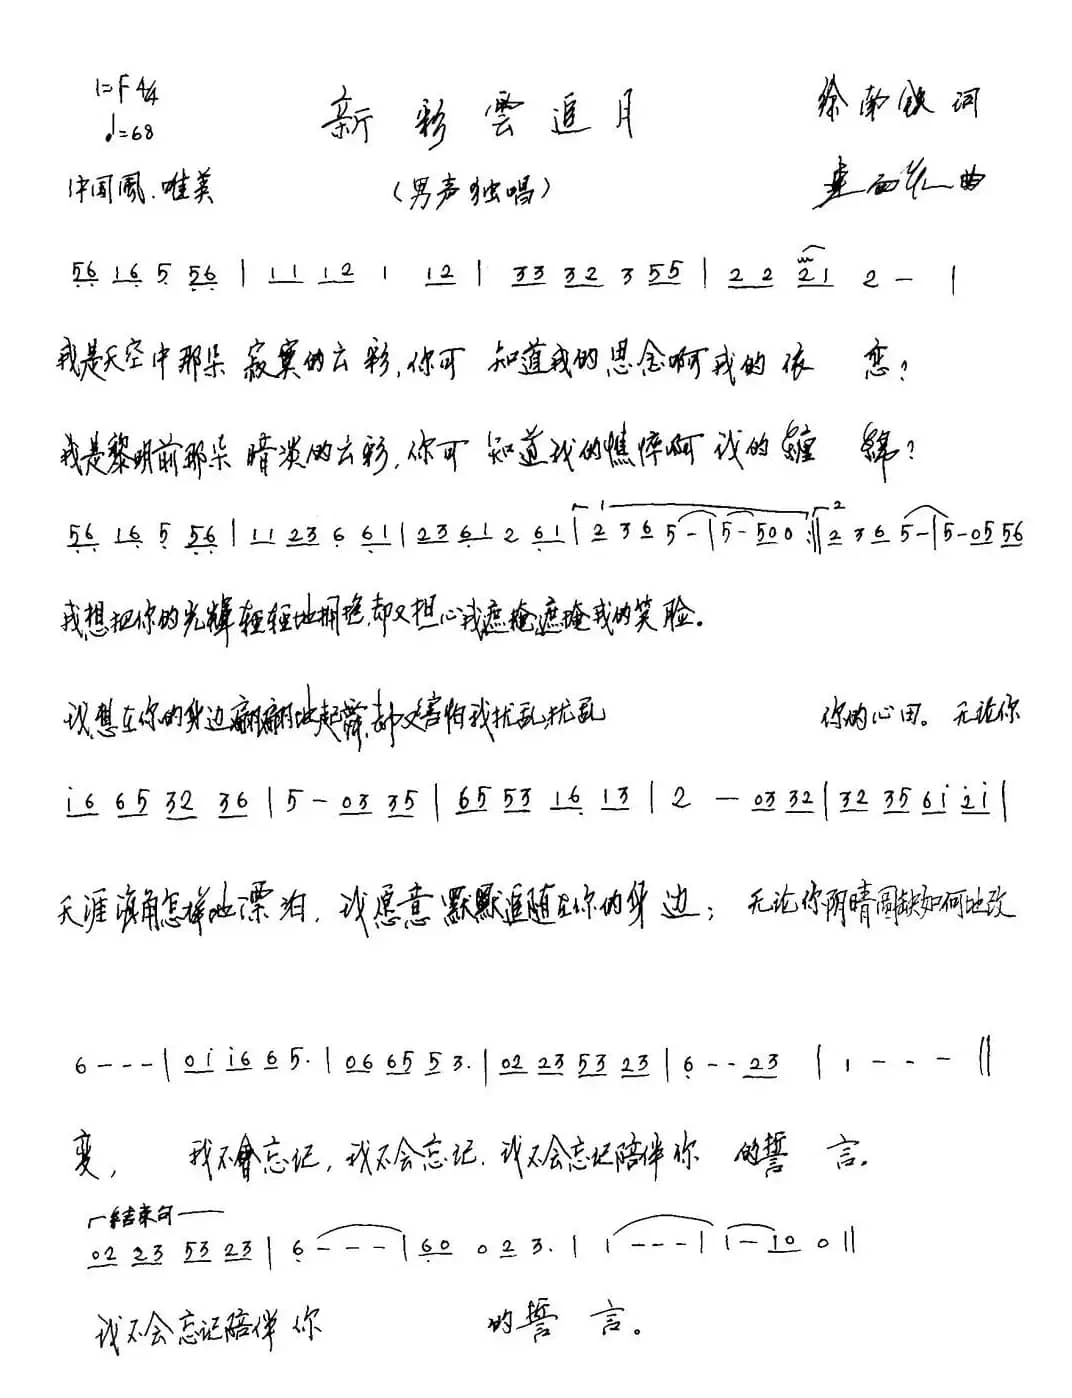 1=F 4/4
♩=68
新彩雲追月
徐南铁 词
中国風.唯美
(男声独唱)
曲
56 16 5 56 | 11 12 1 12 | 33 32 3 55 | 22 21 2 - |
我是天空中那朵寂寞的云彩,你可知道我的思念啊我的依恋?
我是黎明前那朵暗淡的云彩,你可知道我的憔悴啊我的纏綿?
56 16 5 56 | 11 23 6 61 | 23 61 2 61 | 1 2 36 5 - | 5 - 50 0 :‖ 2 2 3 6 5 - | 5 - 05 56
我想把你的光輝轻轻地拥抱,却又担心我遮掩遮掩我的笑脸。
我想在你的身边翩翩地起舞,却又害怕我扰乱扰乱你的心田。无论你
i6 65 32 36 | 5 - 03 35 | 65 53 16 13 | 2 - 03 32 | 32 35 6i 2i |
天涯海角怎样地漂泊,我愿意默默追随在你的身边;无论你阴晴圆缺如何地改
6 - - - | 0i i6 6 5. | 06 65 5 3. | 02 23 53 23 | 6 - - 23 | 1 - - - ‖
变,我不會忘记,我不会忘记.我不会忘记陪伴你的誓言。
结束句
02 23 53 23 | 6 - - - | 60 0 2 3. | i - - - | i - i0 0 ‖
我不会忘记陪伴你的誓言。